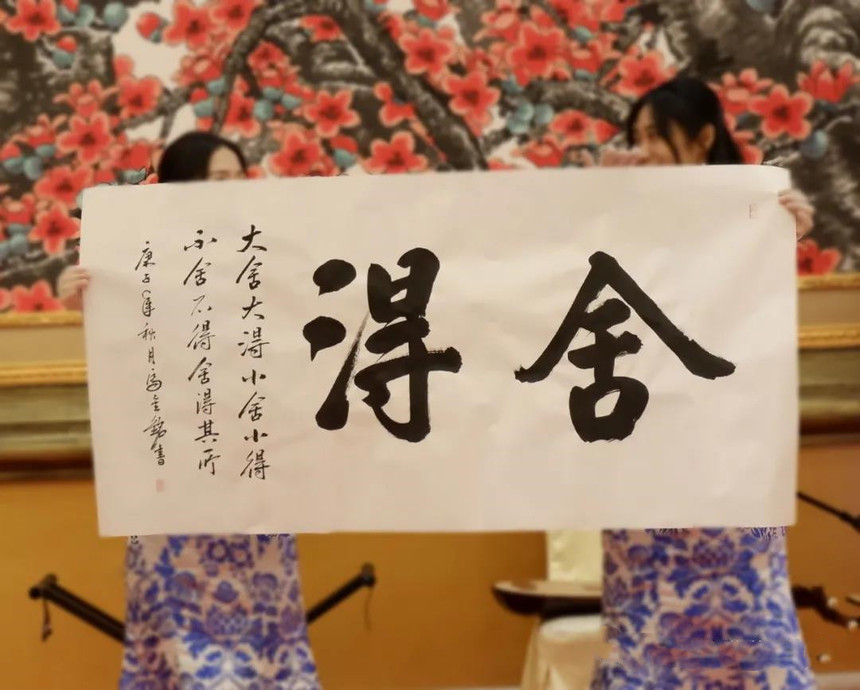 舍得
大舍大得小舍小得
不舍不得舍得其所
庚子年秋月冯金銘書